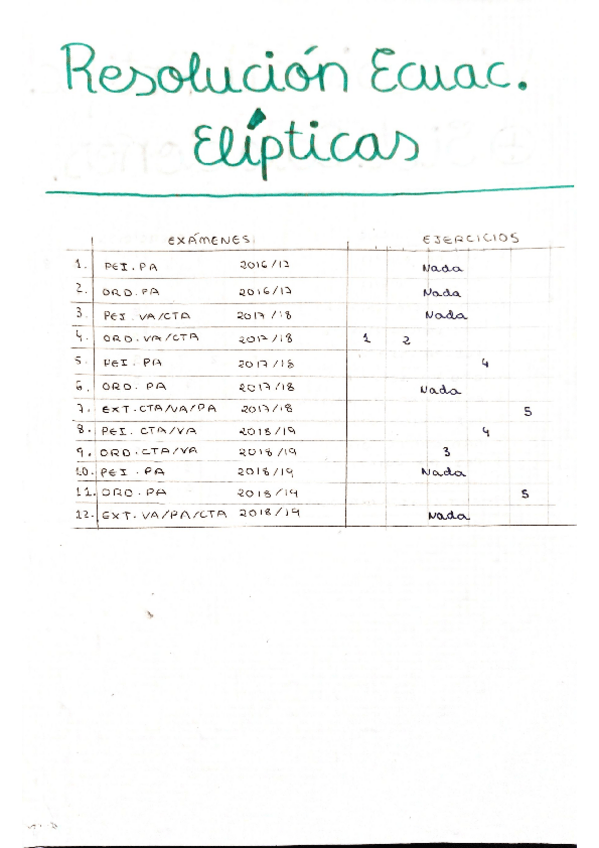 Resolución Ecuac.
Elípticas
EXÁMENES EJERCICIOS
1. PEI. PA 2016/17 Nada
2. ORD. PA 2016/17 Nada
3. PEI. VA/CTA 2017/18 Nada
4. ORD. VA/CTA 2017/18 1 2
5. PEI. PA 2017/18 4
6. ORD. PA 2017/18 Nada
7. EXT. CTA/VA/PA 2017/18 5
8. PEI. CTA/VA 2018/19 4
9. ORD. CTA/VA 2018/19 3
10. PEI. PA 2018/19 Nada
11. ORD. PA 2018/19 5
12. EXT. VA/PA/CTA 2018/19 Nada